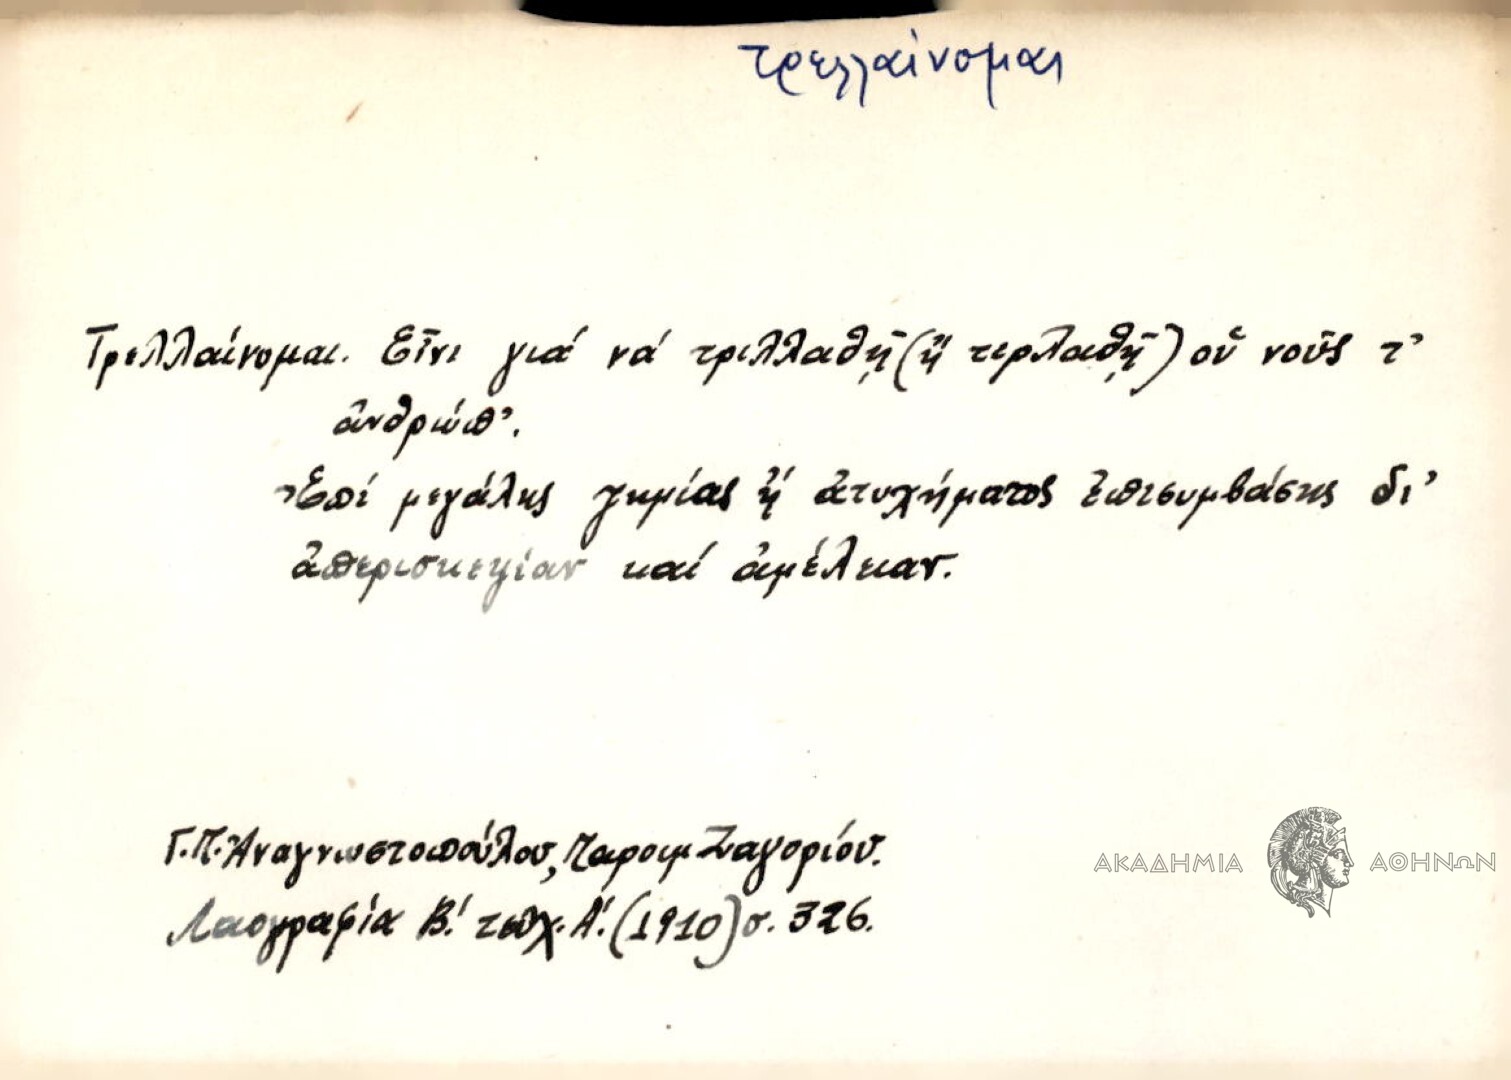 τρελλαίνομαι
Τρελλαίνομαι. Εἶνι γιά νά τριλλαθῇ (ἤ τερλαθῇ) οὗ νοῦς τ'
ἀνθρώπ'.
Ἐπί μεγάλης ζημίας ἤ ἀτυχήματος ἐπισυμβάσης δι'
ἀπερισκεψίαν καί ἀμέλειαν.
Γ.Π. Ἀναγνωστοπούλου, Παροιμ Ζαγορίου.
Λαογραφία Β! τεῦχ. Α! (1910) σ. 326.
ΑΚΑΔΗΜΙΑ ΑΘΗΝΩΝ